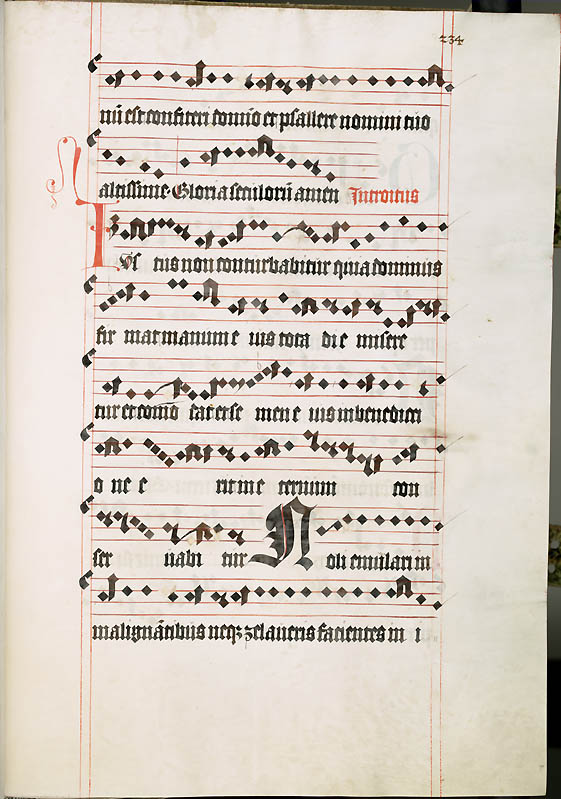 234
nū est confiteri domīo et psallere nomini tuo
altissime Gloria seculorū amen Introitus
Iustus non conturbabitur quia dominus
fir mat manum e ius tota di e misere
tur et como dat et se men e ius in benedicti
o ne e rit in e ternum con
ser uabi tur Noli emulari in
malignātibus neqz zelaueris facientes in i